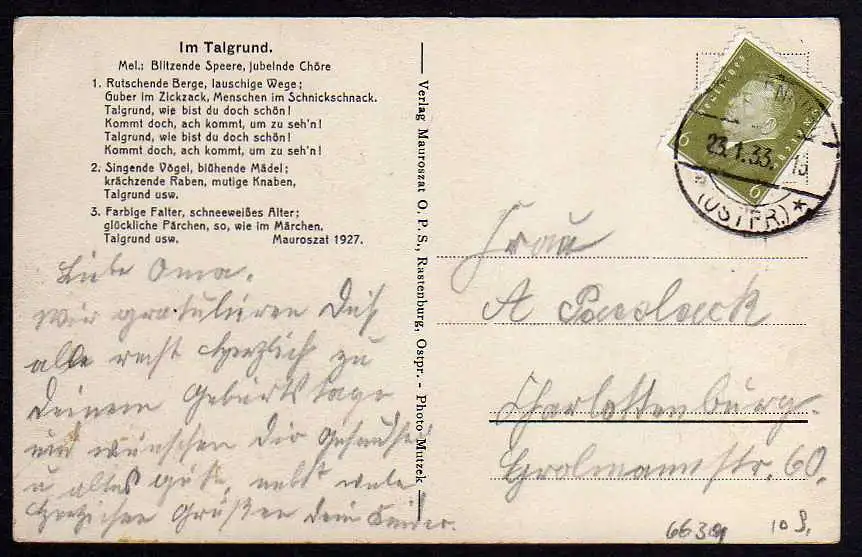 Im Talgrund.
Mel.: Blitzende Speere, jubelnde Chöre
1. Rutschende Berge, lauschige Wege;
Guber im Zickzack, Menschen im Schnickschnack.
Talgrund, wie bist du doch schön!
Kommt doch, ach kommt, um zu seh'n!
Talgrund, wie bist du doch schön!
Kommt doch, ach kommt, um zu seh'n!
2. Singende Vögel, blühende Mädel;
krächzende Raben, mutige Knaben,
Talgrund usw.
3. Farbige Falter, schneeweißes Alter;
glückliche Pärchen, so, wie im Märchen.
Talgrund usw. Mauroszat 1927.
Liebe Oma.
Wir gratulieren Dich
alle recht herzlich zu
Deinem Geburtstage
und wünschen Dir Gesundheit
u alles gute, nebst viele
herzlichen Grüßen Dein
Verlag Mauroszat O. P. S., Rastenburg, Ostpr. - Photo-Mutzek
Deutsches Reich
6 6
23.1.33.
* (OSTPR.) *
Frau
A
Charlottenburg.
Grolmannstr. 60.
10